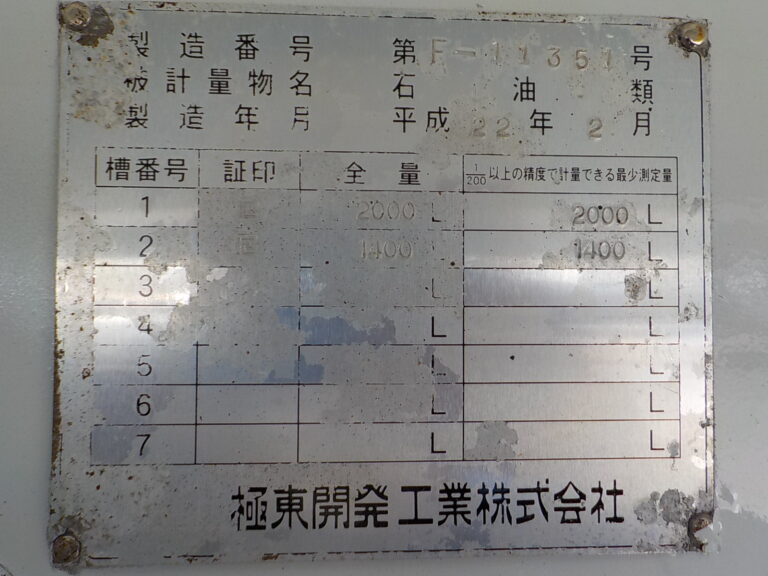 製造番号 第F-11351号
被計量物名 石油類
製造年月 平成22年2月
槽番号 証印 全量 1/200以上の精度で計量できる最少測定量
1 2000 L 2000 L
2 1400 L 1400 L
3 L L
4 L L
5 L L
6 L L
7 L L
極東開発工業株式会社